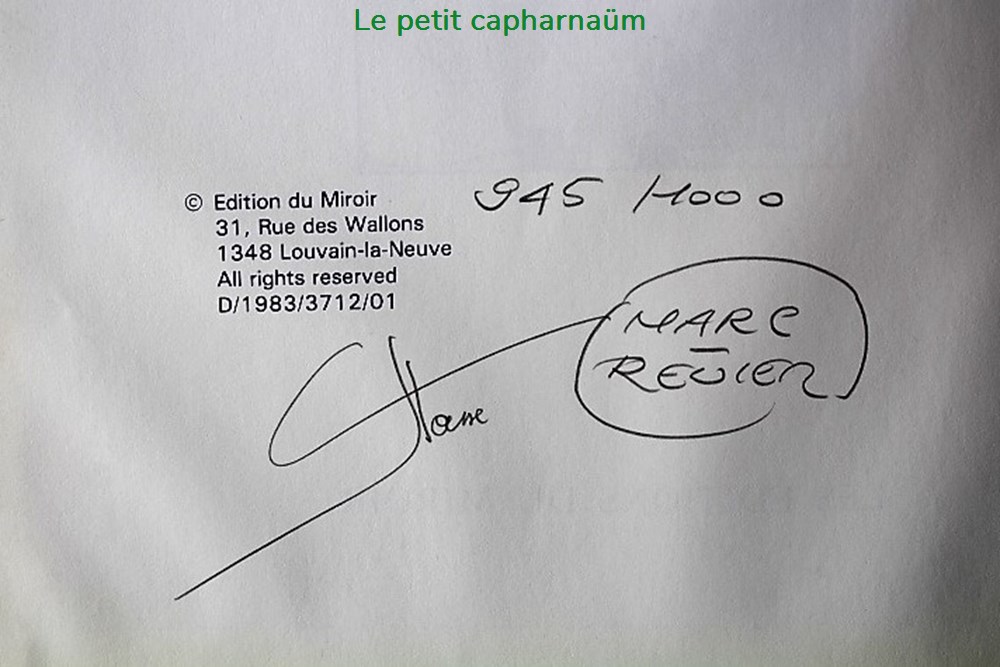 Le petit capharnaüm
© Edition du Miroir
31, Rue des Wallons
1348 Louvain-la-Neuve
All rights reserved
D/1983/3712/01
945 /1000
MARC